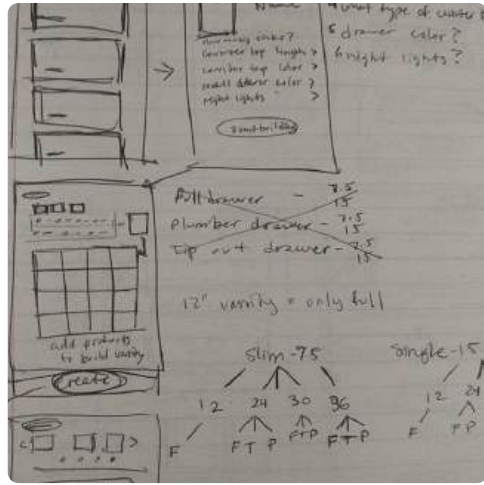 Name
what type of counter
5 drawer color?
6 night lights?
how many sinks?
counter top length >
counter top color >
overall drawer color >
night lights >
Start building
Full drawer - 7.5
15
Plumber drawer - 7.5
15
Tip out drawer - 7.5
15
12" vanity = only full
add products
to build vanity
Create
Slim - 7.5
Single - 15
12 24 30 36
12 24
F F T P F T P F T P
F F P